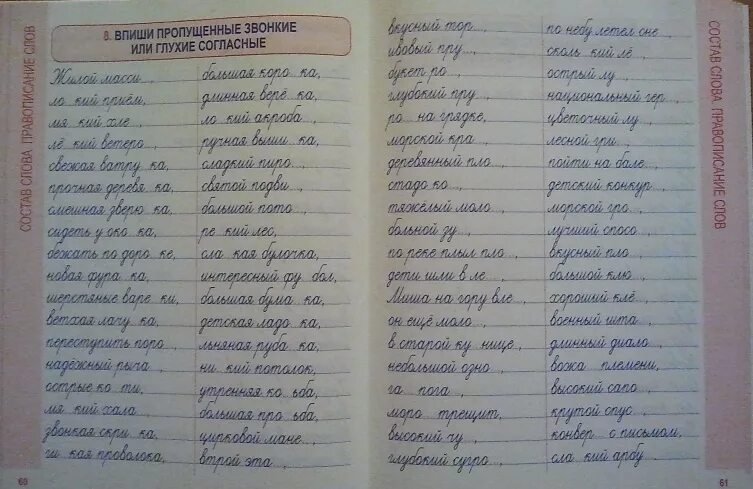 СОСТАВ СЛОВА. ПРАВОПИСАНИЕ СЛОВ
8. ВПИШИ ПРОПУЩЕННЫЕ ЗВОНКИЕ
ИЛИ ГЛУХИЕ СОГЛАСНЫЕ
Жилой масси...,
ло кий приём,
мя кий хле ...,
лё кий ветеро...,
свежая ватру ка,
прочная деревя ка,
смешная зверю ка,
сидеть у око ка,
бежать по доро ке,
новая фура ка,
шерстяные варе ки,
ветхая лачу ка,
переступить поро...,
надёжный рыча ,
острые ко ти,
мя кий хала...,
звонкая скри ка,
ги кая проволока,
большая коро ка,
длинная верё ка,
ло кий акроба...,
ручная выши ка,
сладкий пиро...,
святой подви...,
большой пото...,
ре кий лес,
сла кая булочка,
интересный фу бол,
большая бума ка,
детская ладо ка,
льняная руба ка,
ни кий потолок,
утренняя ко ьба,
большая про ьба,
цирковой мане...,
втрой эта...,
60
вкусный тор...,
ивовый пру...,
букет ро...,
глубокий пру...,
ро на грядке,
морской кра...,
деревянный пло...,
стадо ко...,
тяжёлый моло...,
больной зу...,
по реке плыл пло...,
дети шли в ле...,
Миша на гору вле...,
он ещё моло...,
в старой ку нице,
небольшой озно...,
га пога...,
моро трещит,
высокий чу...,
глубокий сугро...,
по небу летел сне...,
сколь кий лё...,
острый лу...,
национальный гер...,
цветочный лу...,
лесной гри...,
пойти на бале...,
детский конкур...,
морской гро...,
лучший спосо...,
вкусный пло...,
большой клю...,
хороший клё...,
военный шта...,
длинный диало...,
вожа племени,
высокий сапо...,
крутой спус...,
конвер с письмом,
сла кий арбу...,
СОСТАВ СЛОВА. ПРАВОПИСАНИЕ СЛОВ
61